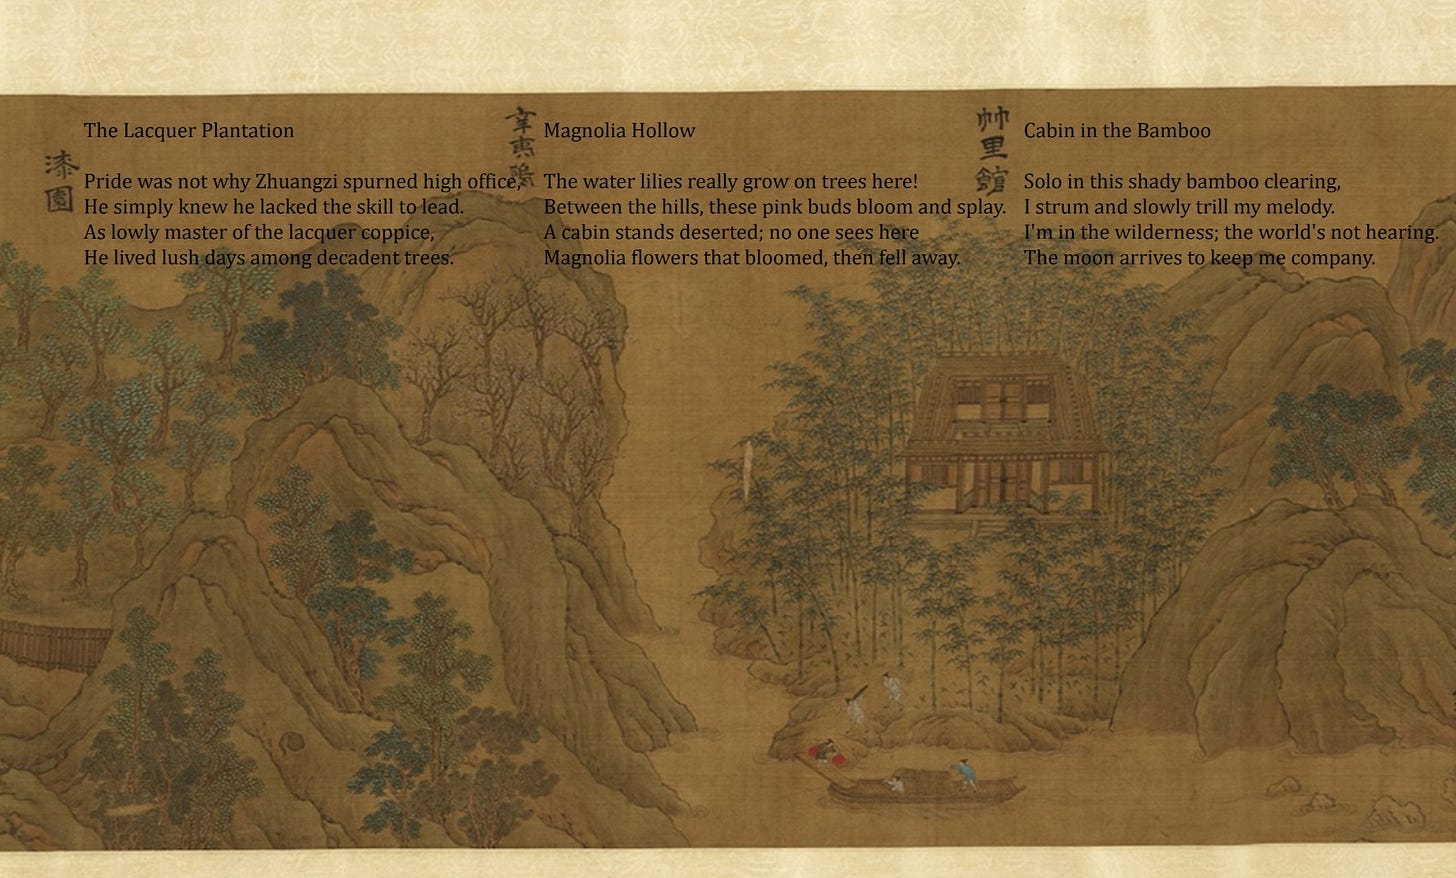 漆園
The Lacquer Plantation
Pride was not why Zhuangzi spurned high office,
He simply knew he lacked the skill to lead.
As lowly master of the lacquer coppice,
He lived lush days among decadent trees.
辛夷塢
Magnolia Hollow
The water lilies really grow on trees here!
Between the hills, these pink buds bloom and splay.
A cabin stands deserted; no one sees here
Magnolia flowers that bloomed, then fell away.
竹里館
Cabin in the Bamboo
Solo in this shady bamboo clearing,
I strum and slowly trill my melody.
I'm in the wilderness; the world's not hearing.
The moon arrives to keep me company.